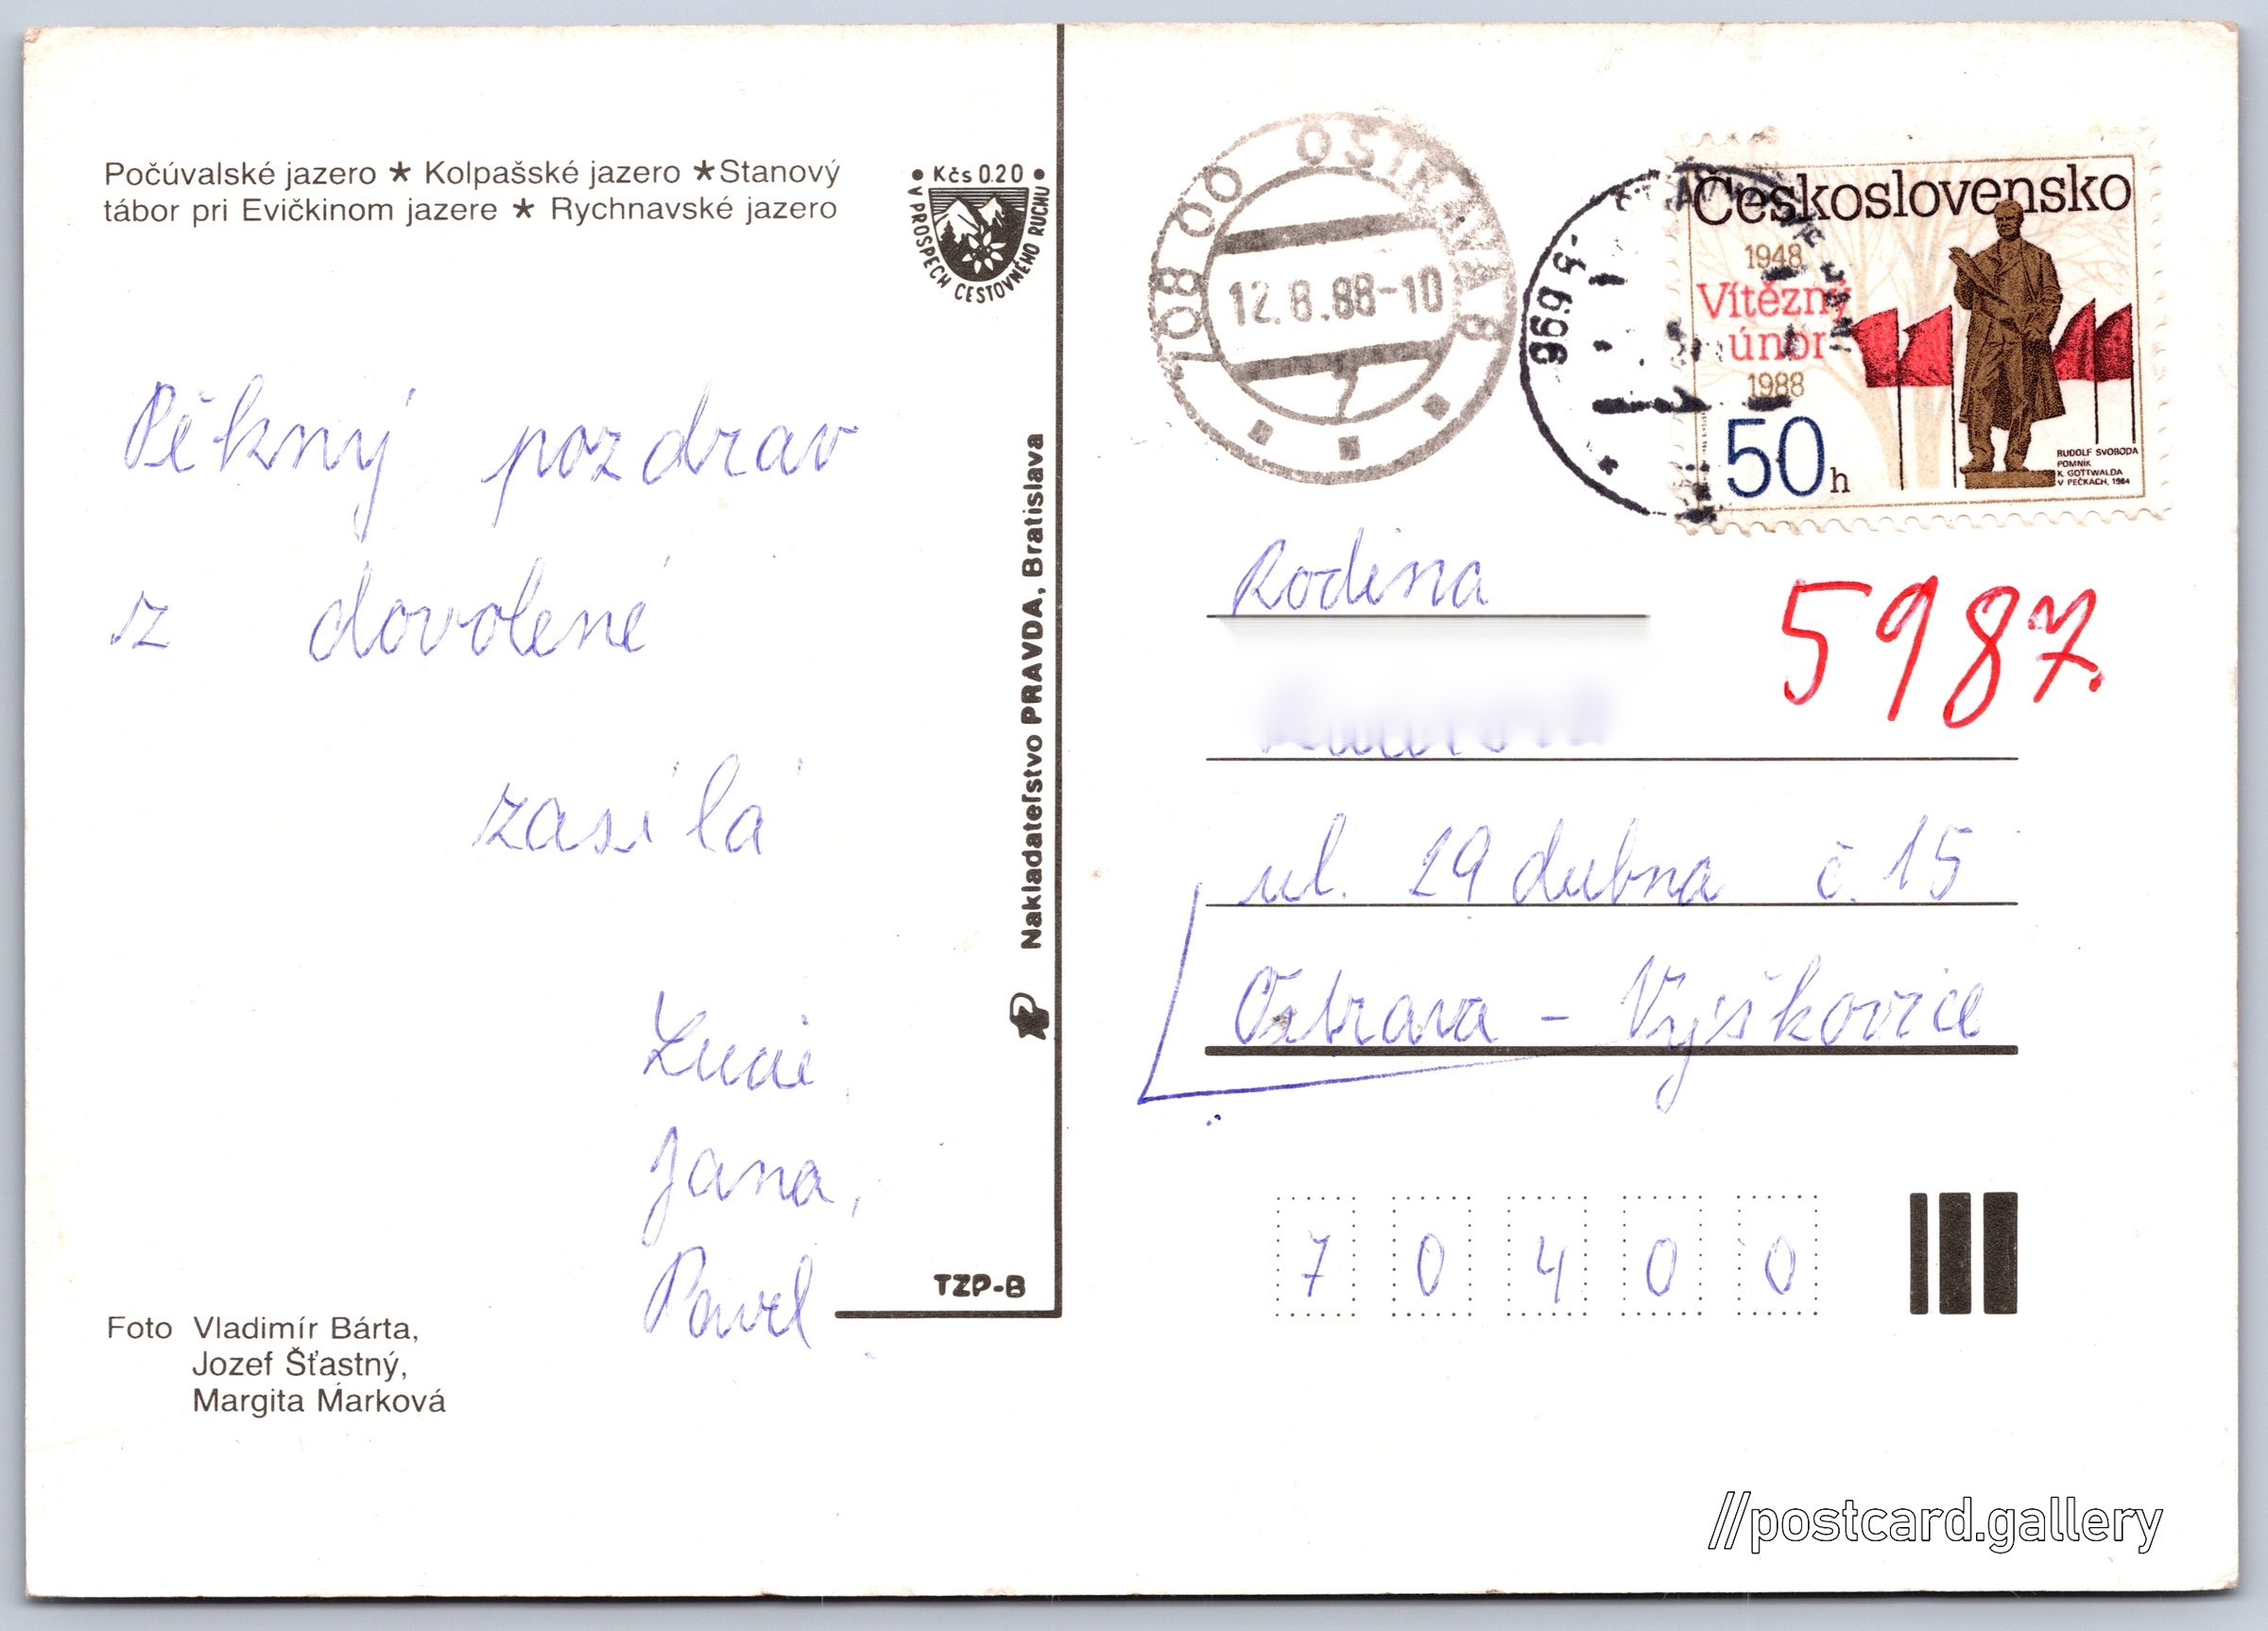 Počúvalské jazero * Kolpašské jazero * Stanový
tábor pri Evičkinom jazere * Rychnavské jazero
• Kčs 0.20 •
V PROSPECH CESTOVNÉHO RUCHU
Pěkný pozdrav
z dovolené
zasílá
Lucie,
Jana,
Pavel
Foto Vladimír Bárta,
Jozef Šťastný,
Margita Marková
Nakladateľstvo PRAVDA, Bratislava
TZP-B
708 00 OSTRAVA 8
12.8.88-10
969
Československo
1948
Vítězný
únor
1988
50 h
RUDOLF SVOBODA
POMNÍK
K. GOTTWALDA
V PEČKÁCH, 1984
5987.
Rodina
ul. 29 dubna č. 15
Ostrava - Výškovice
7 0 4 0 0
//postcard.gallery